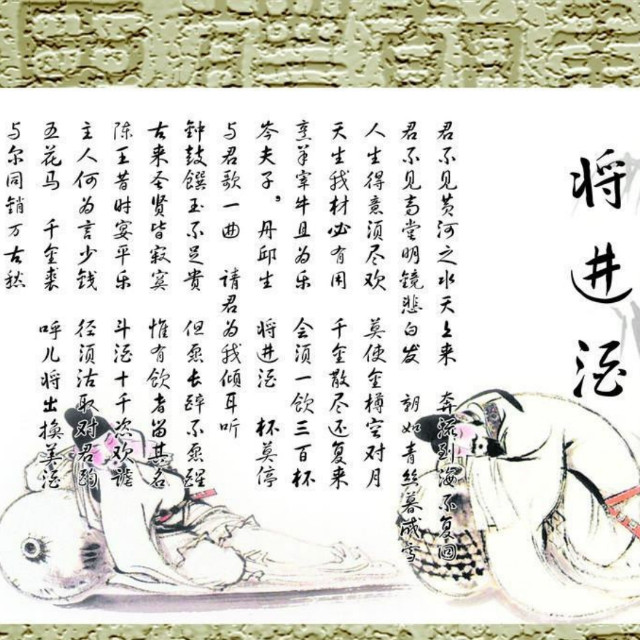 将进酒
君不见黄河之水天上来 奔流到海不复回
君不见高堂明镜悲白发 朝如青丝暮成雪
人生得意须尽欢 莫使金樽空对月
天生我材必有用 千金散尽还复来
烹羊宰牛且为乐 会须一饮三百杯
岑夫子。丹邱生 将进酒 杯莫停
与君歌一曲 请君为我倾耳听
钟鼓馔玉不足贵 但愿长醉不愿醒
古来圣贤皆寂寞 惟有饮者留其名
陈王昔时宴平乐 斗酒十千次欢谑
主人何为言少钱 径须沽取对君酌
五花马 千金裘 呼儿将出换美酒
与尔同销万古愁